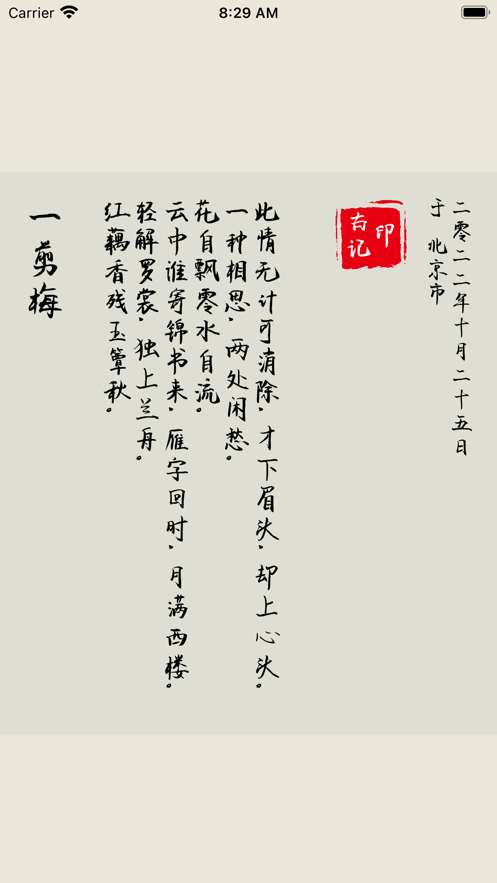 Carrier 8:29 AM
一剪梅
红藕香残玉簟秋。
轻解罗裳,独上兰舟。
云中谁寄锦书来,雁字回时,月满西楼。
花自飘零水自流。
一种相思,两处闲愁。
此情无计可消除,才下眉头,却上心头。
右记
印
于 北京市
二零二二年十月二十五日